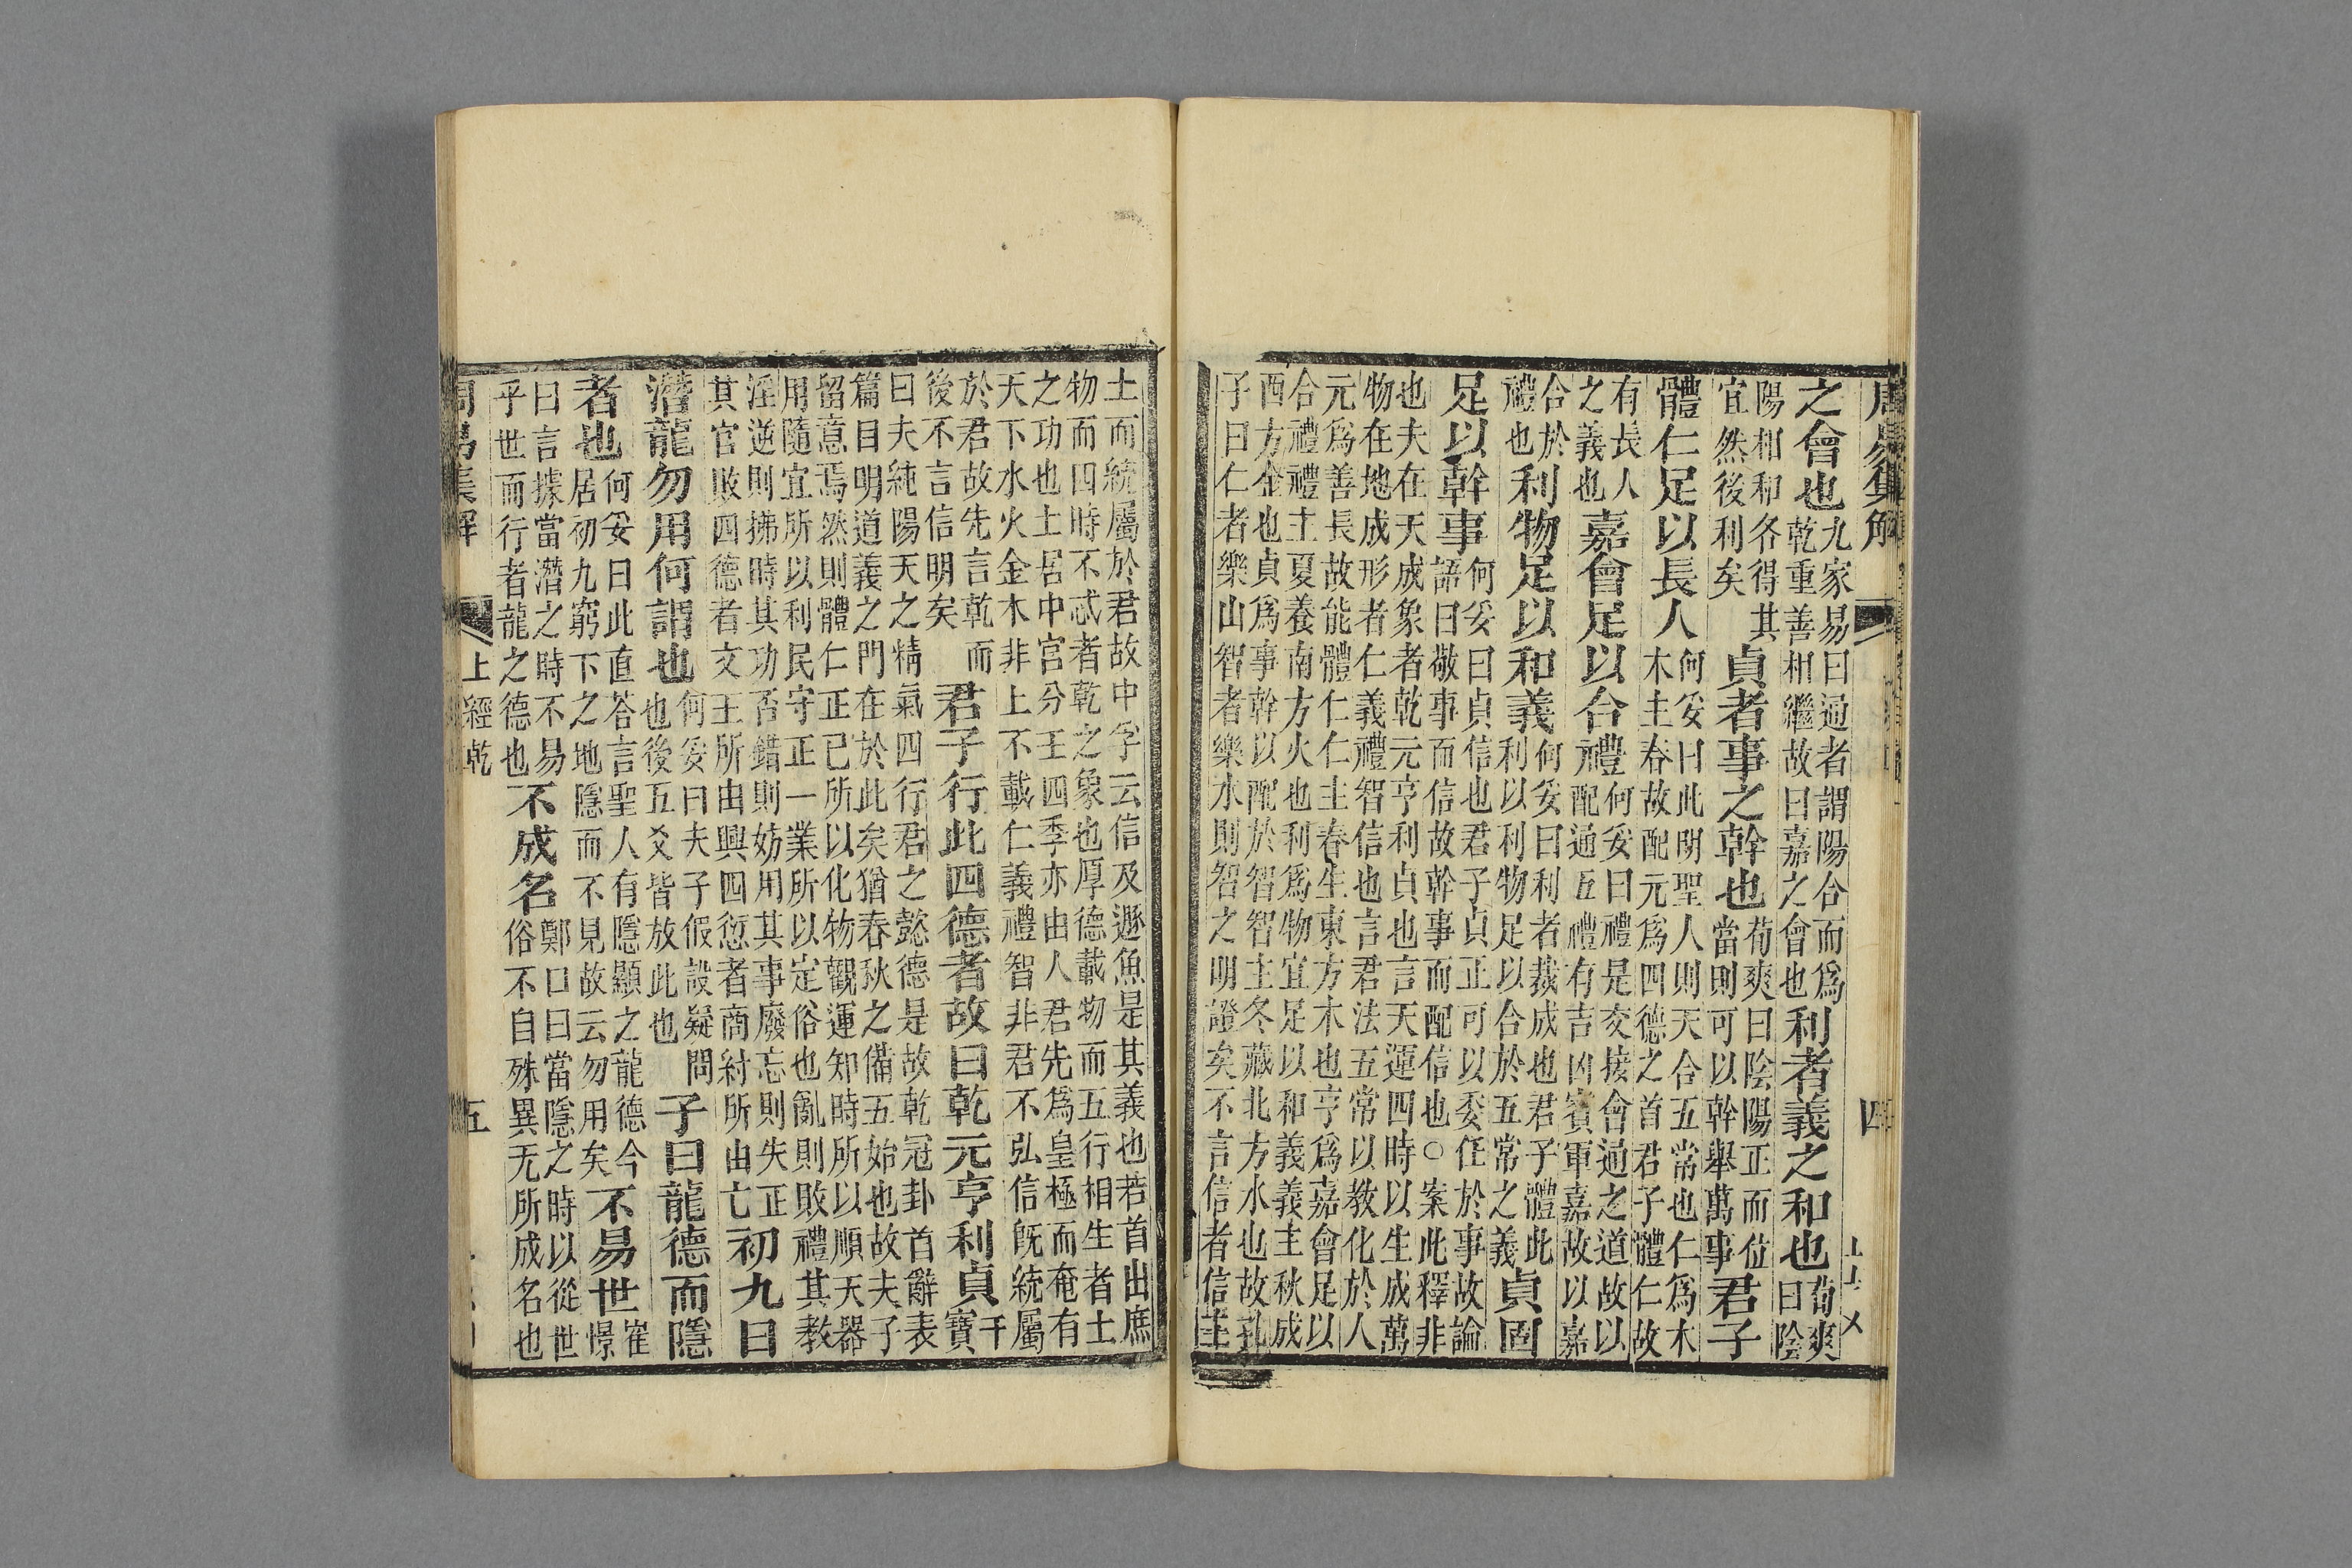 周易集解　四
之會也九家易曰通者謂陽合而爲乾重善相繼故曰嘉之會也利者義之和也荀爽曰陰
陽相和各得其宜然後利矣貞者事之幹也荀爽曰陰陽正而位當則可以幹舉萬事君子
體仁足以長人何妥曰此明聖人則天合五常也仁爲木木主春故配元爲四德之首君子體仁故
有長人之義也嘉會足以合禮何妥曰禮是交接會通之道故以配通五禮有吉凶賓軍嘉故以嘉
合於禮也利物足以和義何妥曰利者裁成也君子體此利以利物足以合於五常之義貞固
足以幹事何妥曰貞信也君子貞正可以委任於事故論語曰敬事而信故幹事而配信也○案此釋非
也夫在天成象者乾元亨利貞也言天運四時以生成萬
物在地成形者仁義禮智信也言君法五常以教化於人
元爲善長故能體仁仁主春生東方木也亨爲嘉會足以
合禮禮主夏養南方火也利爲物宜足以和義義主秋成
西方金也貞爲事幹以配於智智主冬藏北方水也故孔
子曰仁者樂山智者樂水則智之明證矣不言信者信主
土而統屬於君故中孚云信及遯魚是其義也若首出庶
物而四時不忒者乾之象也厚德載物而五行相生者土
之功也土居中宮分王四季亦由人君先爲皇極而奄有
天下水火金木非上不載仁義禮智非君不弘信旣統屬
於君故先言乾而後不言信明矣君子行此四德者故曰乾元亨利貞干寶
曰夫純陽天之精氣四行君之懿德是故乾冠卦首辭表
篇目明道義之門在於此矣猶春秋之備五始也故夫子
留意焉然則體仁正己所以化物觀運知時所以順天器
用隨宜所以利民守正一業所以定俗也亂則敗禮其教
淫逆則拂時其功否錯則妨用其事廢忘則失正
其官敗四德者文王所由興四愆者商紂所由亡初九曰
潛龍勿用何謂也何妥曰夫子假設疑問也後五爻皆放此也子曰龍德而隱
者也何妥曰此直荅言聖人有隱顯之龍德今居初九窮下之地隱而不見故云勿用矣不易世崔憬
曰言據當潛之時不易乎世而行者龍之德也不成名鄭曰當隱之時以從世俗不自殊異无所成名也
周易集解　上經乾　五